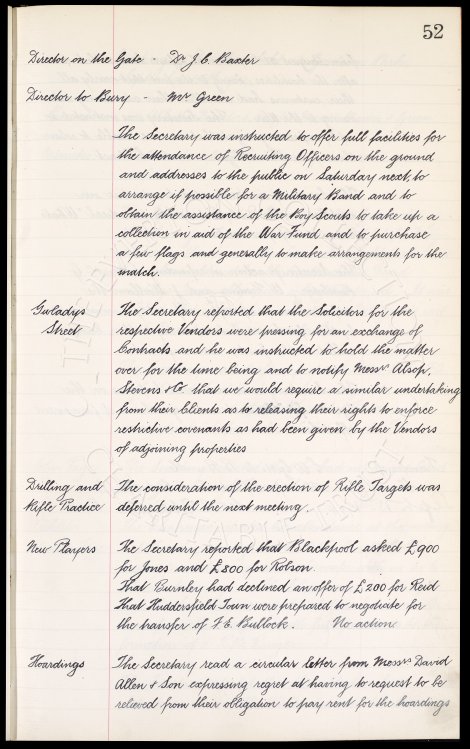 52
Director on the Gate - Dr J. C. Baxter
Director to Bury - Mr Green
The Secretary was instructed to offer full facilities for
the attendance of Recruiting Officers on the ground
and addresses to the public on Saturday next, to
arrange if possible for a Military Band and to
obtain the assistance of the Boy Scouts to take up a
collection in aid of the War Fund and to purchase
a few flags and generally to make arrangements for the
match.
Gwladys The Secretary reported that the Solicitors for the
Street respective Vendors were pressing for an exchange of
Contracts and he was instructed to hold the matter
over for the time being and to notify Messrs Alsop,
Stevens & Co that we would require a similar undertaking
from their Clients as to releasing their rights to enforce
restrictive covenants as had been given by the Vendors
of adjoining properties
Drilling and The consideration of the erection of Rifle Targets was
Rifle Practice deferred until the next meeting.
New Players The Secretary reported that Blackpool asked £900
for Jones and £800 for Robson.
That Burnley had declined an offer of £200 for Reid
That Huddersfield Town were prepared to negotiate for
the transfer of F. E. Bullock. No action
Hoardings The Secretary read a circular letter from Messrs David
Allen & Son expressing regret at having to request to be
relieved from their obligation to pay rent for the hoardings